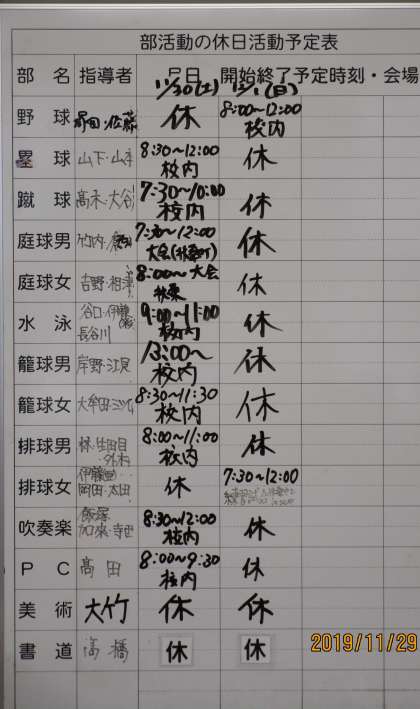 部活動の休日活動予定表
部 名 指導者 月日 開始終了予定時刻・会場
11/30(土) 12/1(日)
野 球 ・佐藤 休 8:00~12:00 校内
塁 球 山下・山本 8:30~12:00 校内 休
蹴 球 高木・大谷 7:30~10:00 校内 休
庭球男 竹内・ 7:30~12:00 大会 休
庭球女 吉野・相澤 8:00~大会 休
水 泳 谷口・伊藤 長谷川 9:00~11:00 校内 休
籠球男 岸野・江見 13:00~ 校内 休
籠球女 大牟田・ 8:30~11:30 校内 休
排球男 林・生田目 8:00~11:00 校内 休
排球女 伊藤 岡田・太田 休 7:30~12:00
吹奏楽 飯塚 加来・寺西 8:30~12:00 校内 休
PC 髙田 8:00~9:30 校内 休
美 術 大竹 休 休
書 道 高橋 休 休
2019/11/29